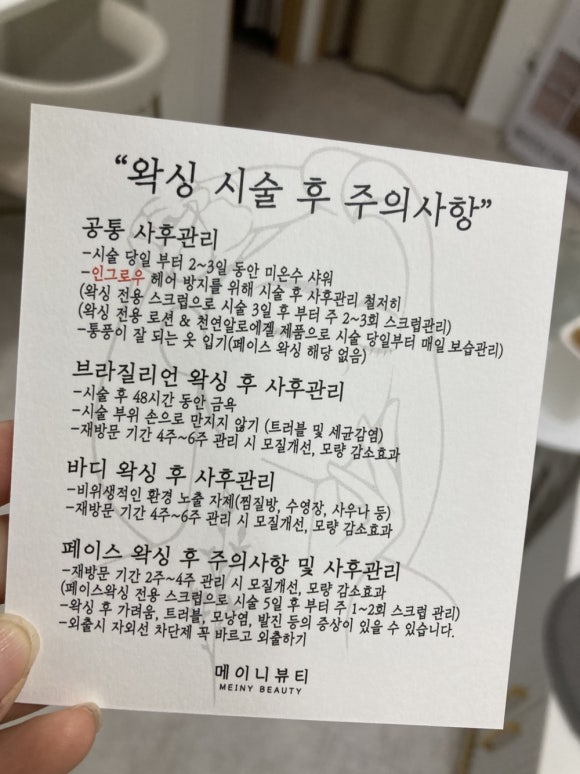 “왁싱 시술 후 주의사항”
공통 사후관리
-시술 당일 부터 2~3일 동안 미온수 샤워
-인그로우 헤어 방지를 위해 시술 후 사후관리 철저히
(왁싱 전용 스크럽으로 시술 3일 후 부터 주 2~3회 스크럽관리)
(왁싱 전용 로션 & 천연알로에겔 제품으로 시술 당일부터 매일 보습관리)
-통풍이 잘 되는 옷 입기(페이스 왁싱 해당 없음)
브라질리언 왁싱 후 사후관리
-시술 후 48시간 동안 금욕
-시술 부위 손으로 만지지 않기 (트러블 및 세균감염)
-재방문 기간 4주~6주 관리 시 모질개선, 모량 감소효과
바디 왁싱 후 사후관리
-비위생적인 환경 노출 자제(찜질방, 수영장, 사우나 등)
-재방문 기간 4주~6주 관리 시 모질개선, 모량 감소효과
페이스 왁싱 후 주의사항 및 사후관리
-재방문 기간 2주~4주 관리 시 모질개선, 모량 감소효과
(페이스왁싱 전용 스크럽으로 시술 5일 후 부터 주 1~2회 스크럽 관리)
-왁싱 후 가려움, 트러블, 모낭염, 발진 등의 증상이 있을 수 있습니다.
-외출시 자외선 차단제 꼭 바르고 외출하기
메이니뷰티
MEINY BEAUTY